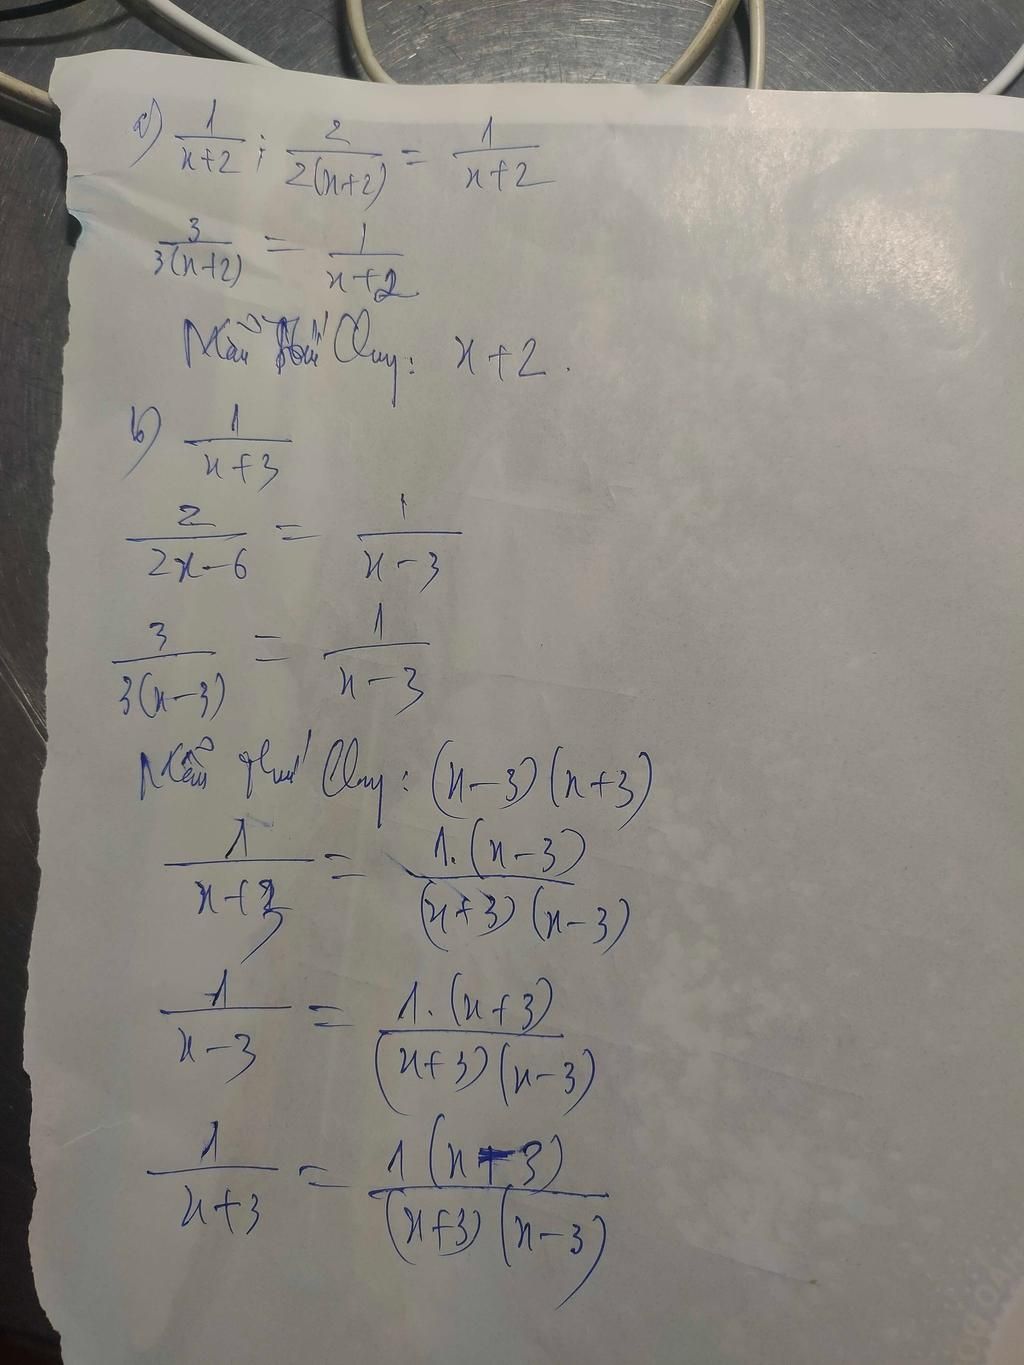 a) 1/(x+2) ; 2/(2(x+2)) = 1/(x+2)
3/(3(x+2)) = 1/(x+2)
Mẫu thức Chung: x+2.
b) 1/(x+3)
2/(2x-6) = 1/(x-3)
3/(3(x-3)) = 1/(x-3)
Mẫu thức Chung: (x-3)(x+3)
1/(x+3) = 1.(x-3)/((x+3)(x-3))
1/(x-3) = 1.(x+3)/((x+3)(x-3))
1/(x+3) = 1(x-3)/((x+3)(x-3))